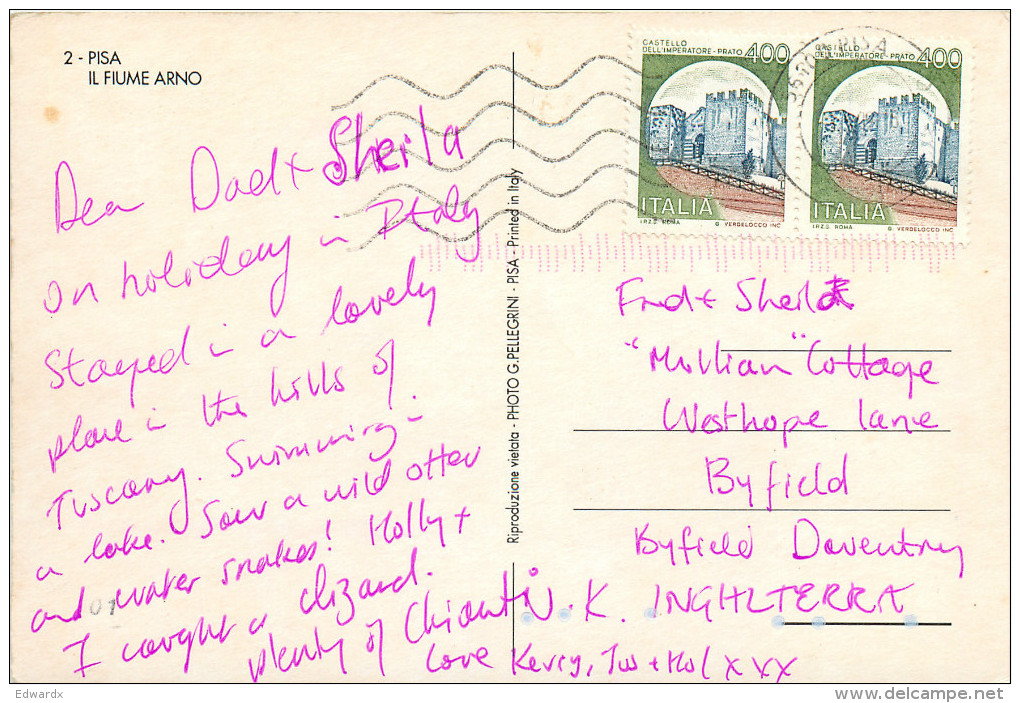 2 - PISA
IL FIUME ARNO
CASTELLO
DELL'IMPERATORE - PRATO
400
ITALIA
I.P.Z.S. ROMA
G. VERDELOCCO INC
CASTELLO
DELL'IMPERATORE - PRATO
400
ITALIA
I.P.Z.S. ROMA
G. VERDELOCCO INC
PISA
Dear Dad + Sheila
On holiday in Italy
Stayed in a lovely
place in the hills of
Tuscany. Swimming in
a lake. Saw a wild otter
and water snakes! Holly +
I caught a lizard.
plenty of Chianti
Love Kerry, + Hol xxx
Riproduzione vietata - PHOTO G. PELLEGRINI - PISA - Printed in Italy
Fred + Sheila
" " Cottage
Westhope Lane
Byfield
Byfield Daventry
U.K. INGHLTERRA
Edwardx
delcampe.net